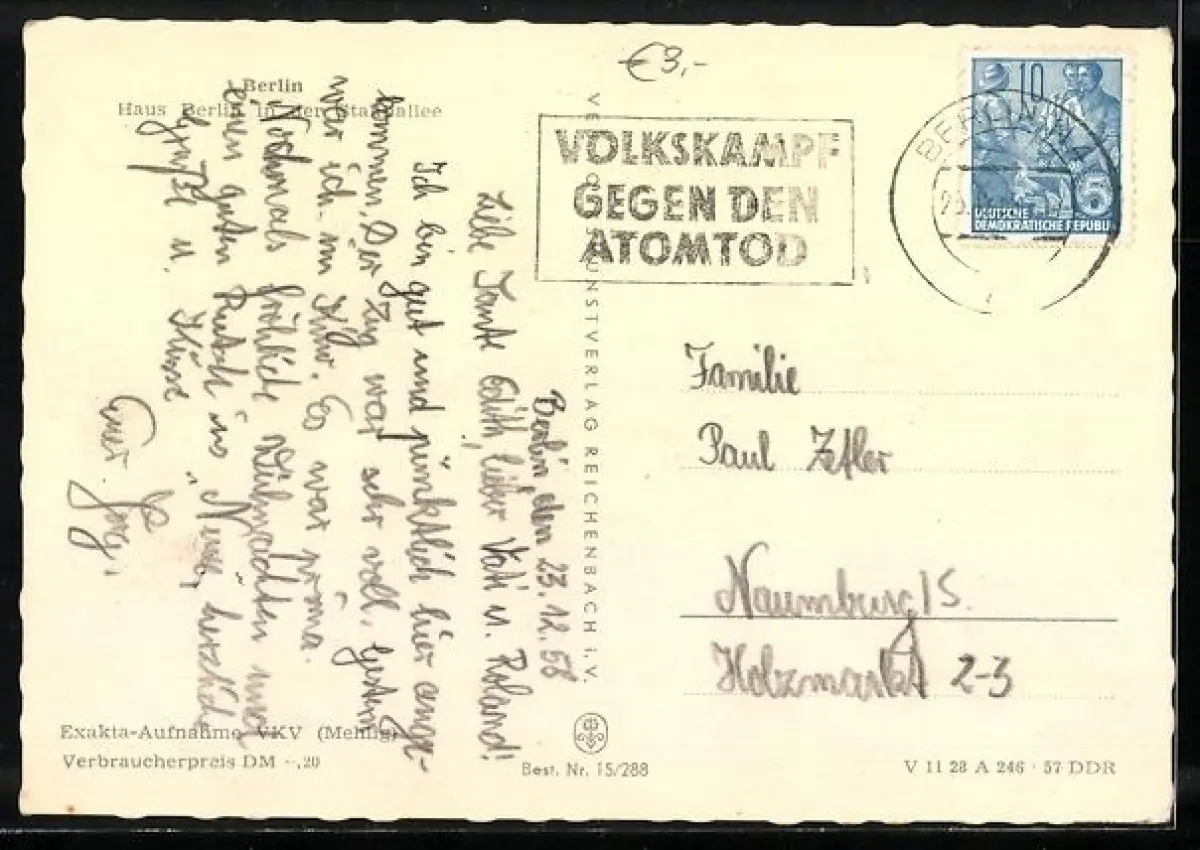 €3,-
Berlin
Haus Berlin in der Stalinallee
VOLKSKAMPF
GEGEN DEN
ATOMTOD
BERLIN
10
5
DEUTSCHE
DEMOKRATISCHE REPUBLIK
Berlin, den 23.12.58
Liebe Tante Edith, lieber Vati u. Roland!
Ich bin gut und pünktlich hier ange-
kommen. Der Zug war sehr voll. Gestern
war ich im Kino. Es war prima.
Nochmals fröhliche Weihnachten und
einen guten Rutsch ins "Neue", herzliche
Grüße u. Küsse
Euer
Familie
Paul
Naumburg/S.
Holzmarkt 2-3
KUNSTVERLAG REICHENBACH i. V.
Exakta-Aufnahme VKV (Mehlig)
Verbraucherpreis DM -,20
Best. Nr. 15/288
V 11 28 A 246 · 57 DDR